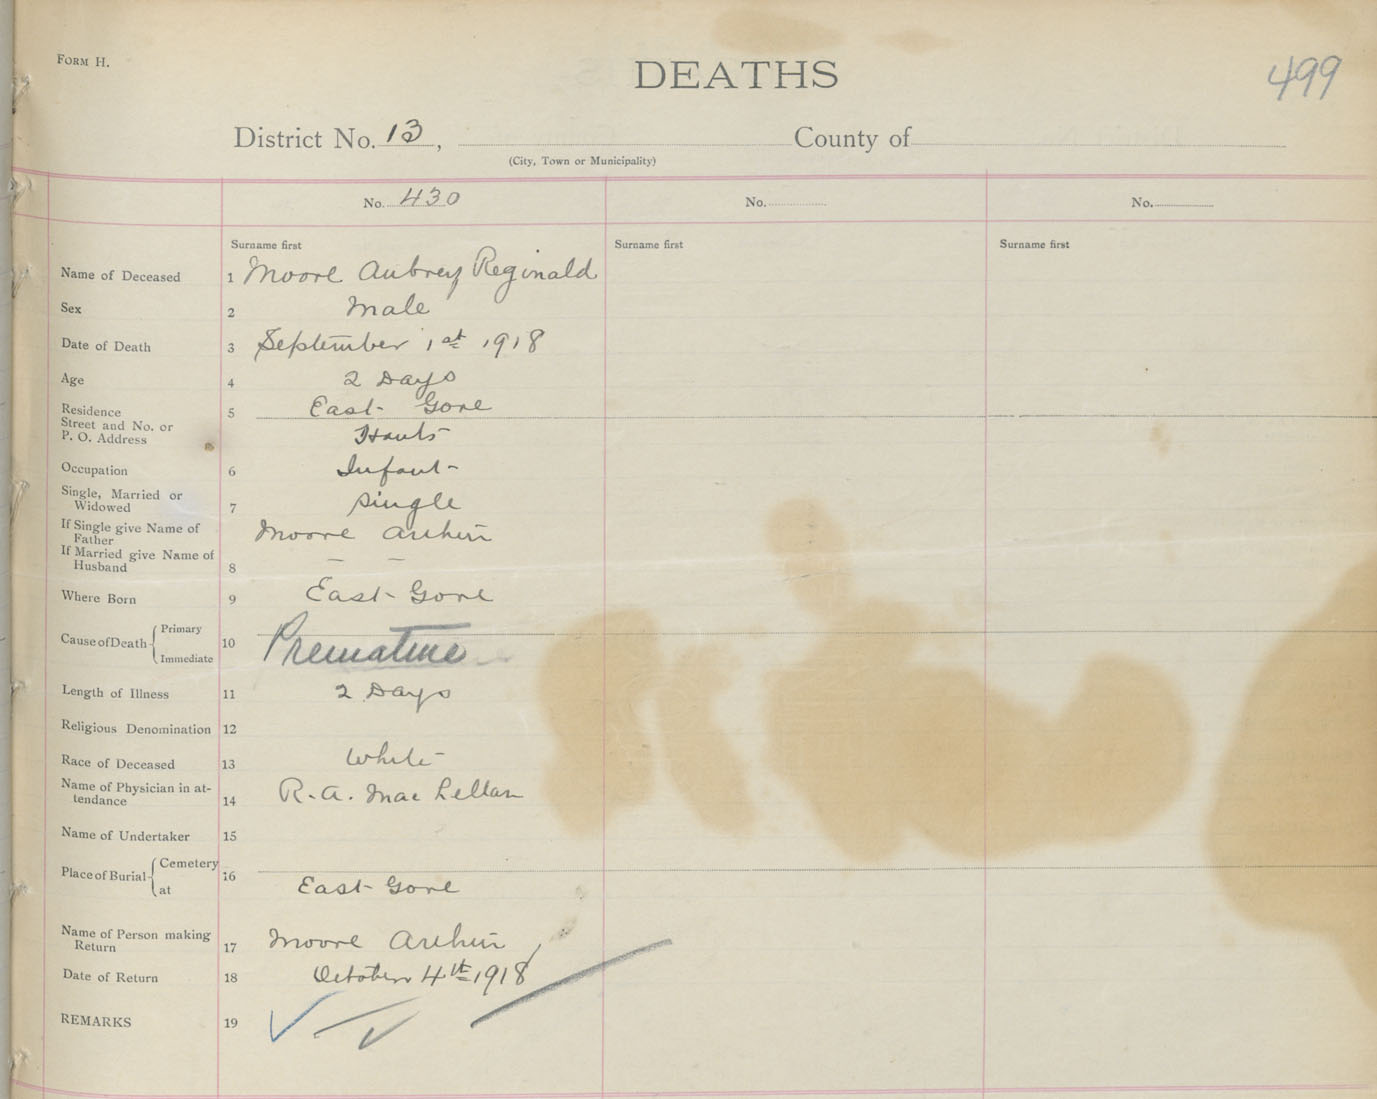 FORM H.
499
DEATHS
District No. 13, County of
(City, Town or Municipality)
No. 430 No. No.
Surname first Surname first Surname first
Name of Deceased 1 Moore Aubrey Reginald
Sex 2 Male
Date of Death 3 September 1st 1918
Age 4 2 Days
Residence
Street and No. or
P. O. Address 5 East Gore
Hants
Occupation 6 Infant
Single, Married or
Widowed 7 Single
If Single give Name of
Father Moore Arthur
If Married give Name of
Husband 8 — —
Where Born 9 East Gore
Cause of Death Primary
Immediate 10 Premature
Length of Illness 11 2 Days
Religious Denomination 12
Race of Deceased 13 White
Name of Physician in at-
tendance 14 R. A. MacLellan
Name of Undertaker 15
Place of Burial Cemetery
at 16 East Gore
Name of Person making
Return 17 Moore Arthur
Date of Return 18 October 4th 1918
REMARKS 19